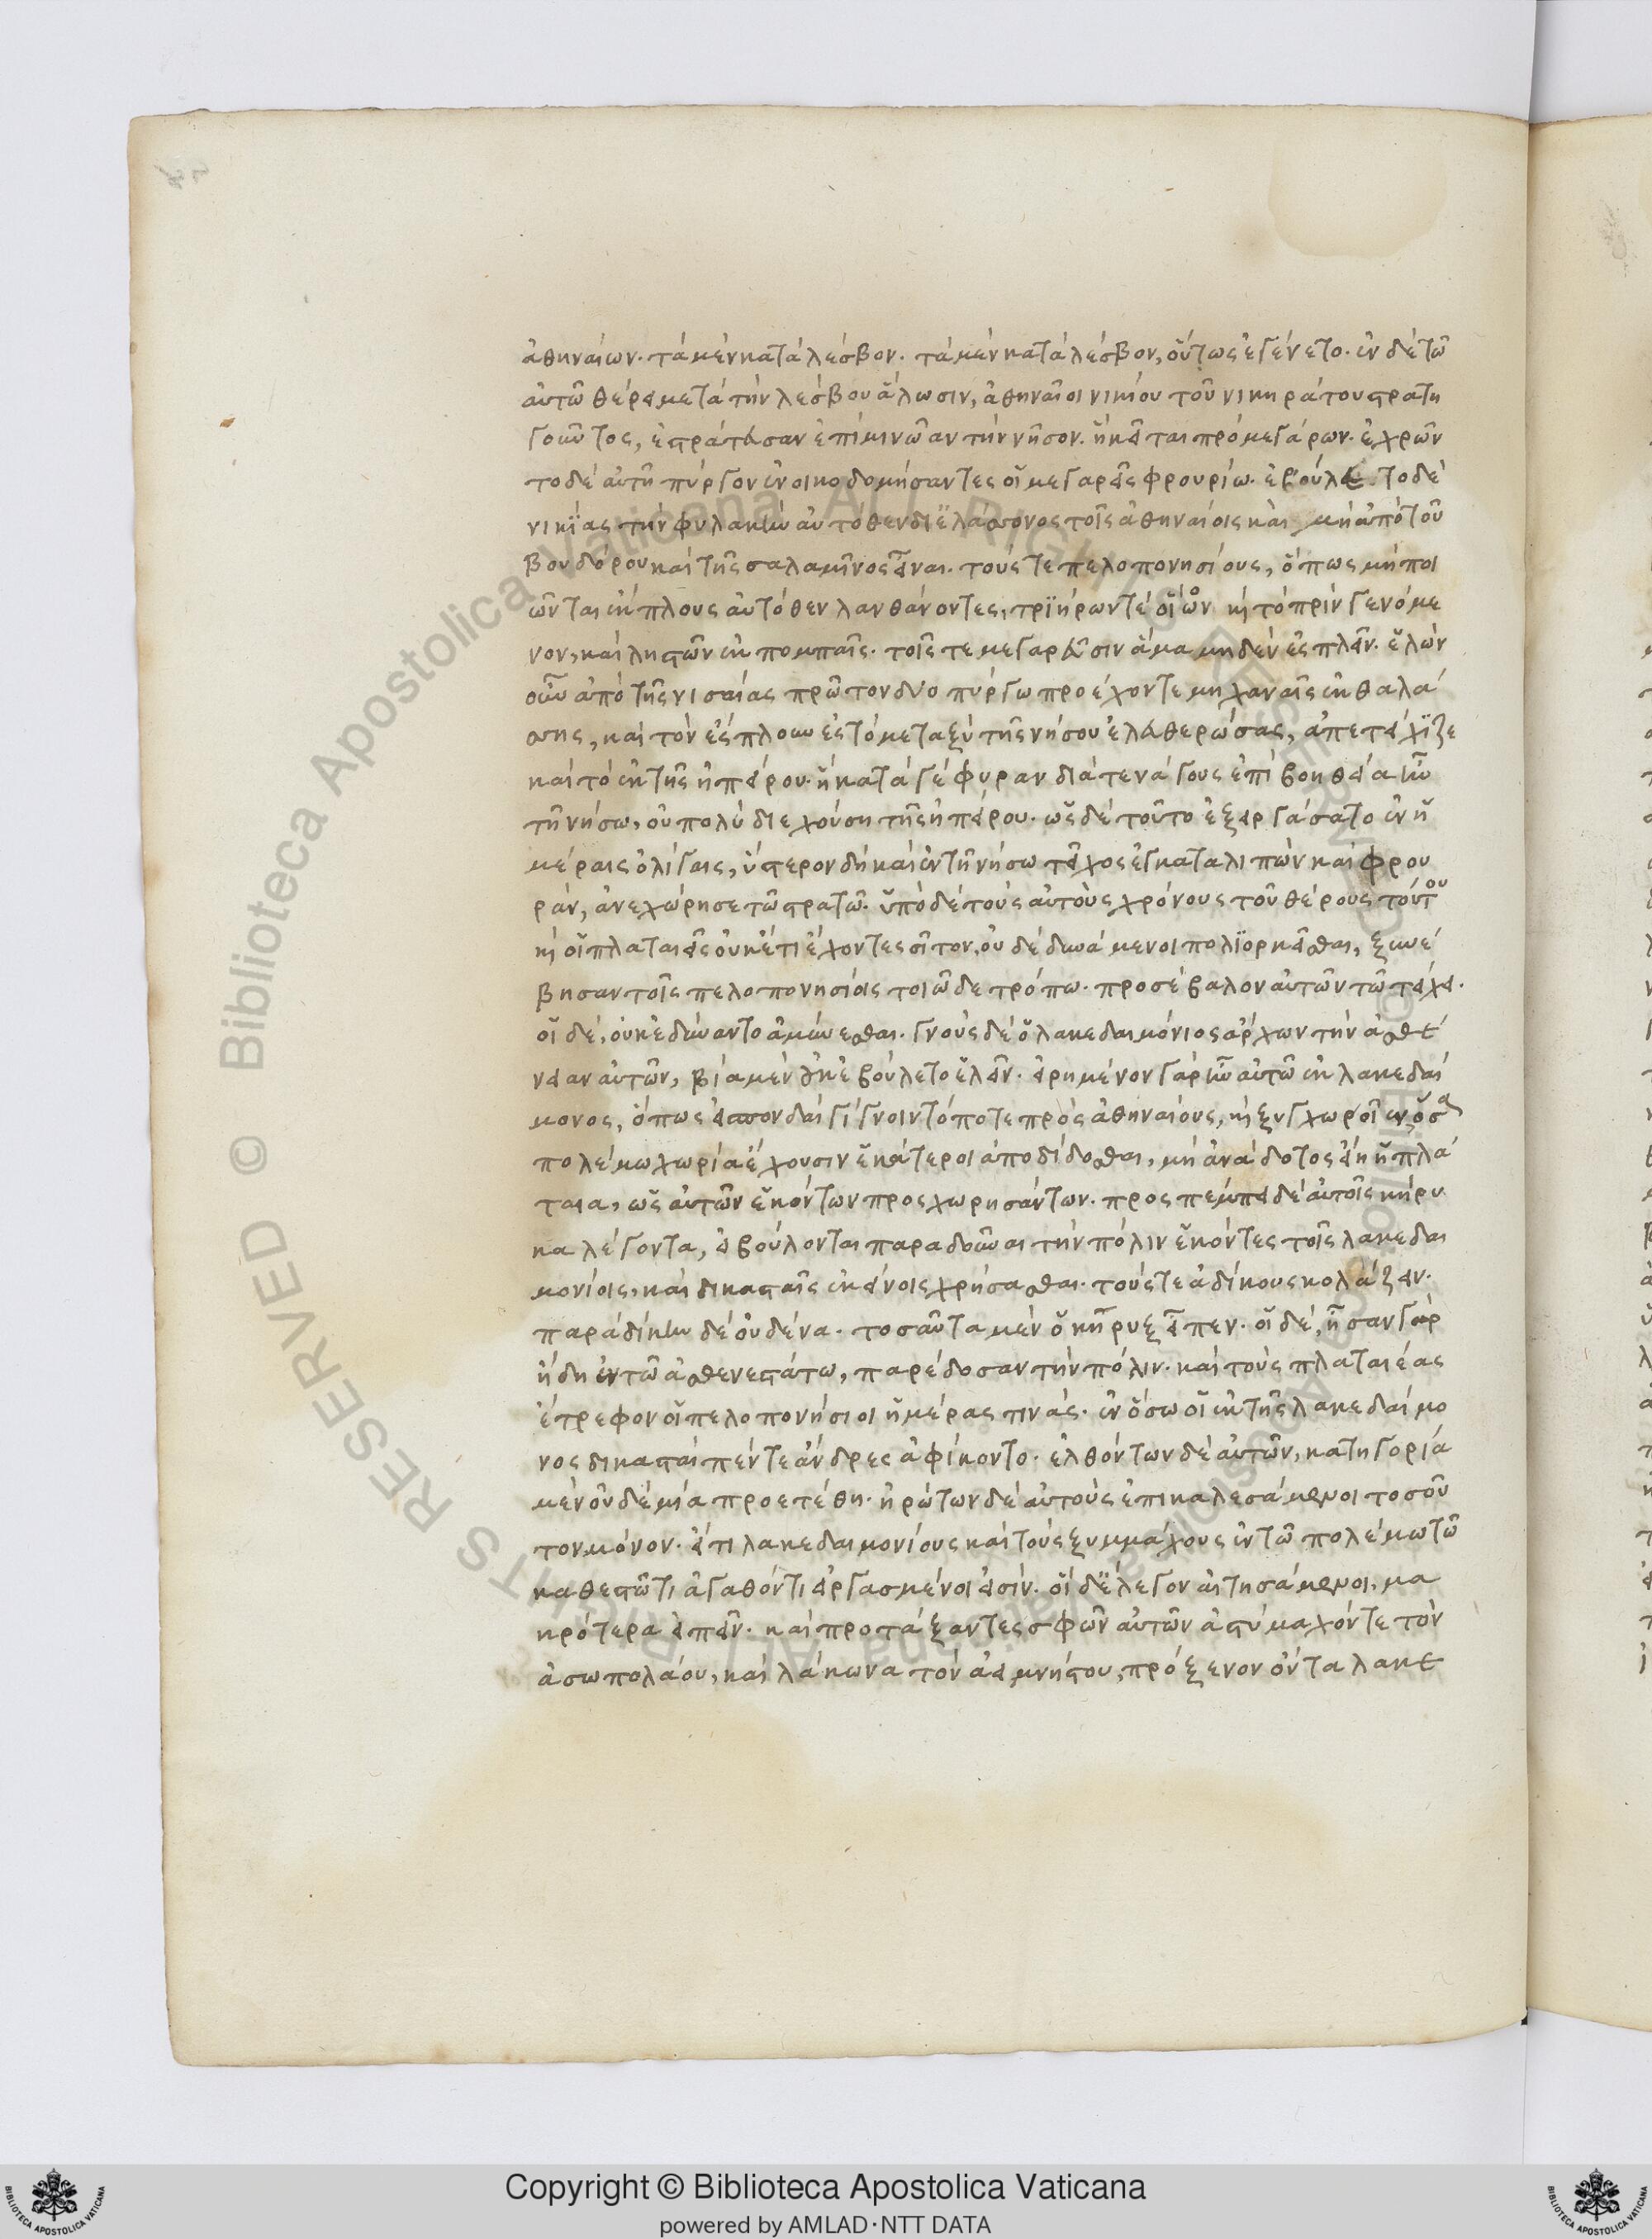 ἀθηναίων· τὰ μὲν κατὰ λέσβον· τὰ μὲν κατὰ λέσβον, οὕτως ἐγένετο· ἐν δὲ τῶ
αὐτῶ θέρει μετὰ τὴν λέσβου ἅλωσιν, ἀθηναῖοι νικίου τοῦ νικηράτου στρατη
γοῦντος, ἐστράτευσαν ἐπὶ μινῶαν τὴν νῆσον· ἣ κεῖται πρὸ μεγάρων· ἐχρῶν
το δὲ αὐτῆ πύργον ἐνοικοδομήσαντες οἱ μεγαρεῖς φρουρίω· ἐβούλετο δὲ
νικίας τὴν φυλακὴν αὐτόθεν δι' ἐλάσσονος τοῖς ἀθηναίοις καὶ μὴ ἀπὸ τοῦ
βουδόρου καὶ τῆς σαλαμῖνος εἶναι· τούς τε πελοπονησίους, ὅπως μὴ ποι
ῶνται ἔκπλους αὐτόθεν λανθάνοντες, τριήρων τὲ οἷον καὶ τὸ πρὶν γενόμε
νον, καὶ ληστῶν ἐκπομπαῖς· τοῖς τε μεγαρεῦσιν ἅμα μηδὲν ἐσπλεῖν· ἑλὼν
οὖν ἀπὸ τῆς νισαίας πρῶτον δύο πύργω προέχοντε μηχαναῖς ἐκ θαλά
σσης, καὶ τὸν ἔσπλουν ἐς τὸ μεταξὺ τῆς νήσου ἐλευθερώσας, ἀπετείχιζε
καὶ τὸ ἐκ τῆς ἠπείρου· ἧ κατὰ γέφυραν διὰ τενάγους ἐπιβοήθεια ἦν
τῆ νήσω, οὐ πολὺ διεχούση τῆς ἠπείρου· ὡς δὲ τοῦτο ἐξειργάσατο ἐν ἡ
μέραις ὀλίγαις, ὕστερον δὴ καὶ ἐν τῆ νήσω τεῖχος ἐγκαταλιπὼν καὶ φρου
ράν, ἀνεχώρησε τῶ στρατῶ· ὑπὸ δὲ τοὺς αὐτοὺς χρόνους τοῦ θέρους τούτου
καὶ οἱ πλαταιεῖς οὐκέτι ἔχοντες σῖτον, οὐδὲ δυνάμενοι πολιορκεῖσθαι, ξυνέ
βησαν τοῖς πελοπονησίοις τοιῶδε τρόπω· προσέβαλον αὐτῶν τῶ τείχει·
οἱ δέ, οὐκ ἐδύναντο ἀμύνεσθαι· γνοὺς δὲ ὁ λακεδαιμόνιος ἄρχων τὴν ἀσθέ
νειαν αὐτῶν, βία μὲν οὐκ ἐβούλετο ἑλεῖν· εἰρημένον γὰρ ἦν αὐτῶ ἐκ λακεδαί
μονος, ὅπως εἰ σπονδαὶ γίγνοιντό ποτε πρὸς ἀθηναίους, καὶ ξυγχωροῖεν ὅσα
πολέμω χωρία ἔχουσιν ἑκάτεροι ἀποδίδοσθαι, μὴ ἀνάδοτος εἴη ἡ πλά
ταια, ὡς αὐτῶν ἑκόντων προσχωρησάντων· προσπέμπει δὲ αὐτοῖς κήρυ
κα λέγοντα, εἰ βούλονται παραδοῦναι τὴν πόλιν ἑκόντες τοῖς λακεδαι
μονίοις, καὶ δικασταῖς ἐκείνοις χρήσασθαι· τούς τε ἀδίκους κολάζειν·
παρὰ δίκην δὲ οὐδένα· τοσαῦτα μὲν ὁ κῆρυξ εἶπεν· οἱ δέ, ἦσαν γὰρ
ἤδη ἐν τῶ ἀσθενεστάτω, παρέδοσαν τὴν πόλιν· καὶ τοὺς πλαταιέας
ἔτρεφον οἱ πελοπονήσιοι ἡμέρας τινάς· ἐν ὅσω οἱ ἐκ τῆς λακεδαίμο
νος δικασταὶ πέντε ἄνδρες ἀφίκοντο· ἐλθόντων δὲ αὐτῶν, κατηγορία
μὲν οὐδεμία προετέθη· ἠρώτων δὲ αὐτοὺς ἐπικαλεσάμενοι τοσοῦ
τον μόνον· εἴ τι λακεδαιμονίους καὶ τοὺς ξυμμάχους ἐν τῶ πολέμω τῶ
καθεστῶτι ἀγαθόν τι εἰργασμένοι εἰσίν· οἱ δ' ἔλεγον αἰτησάμενοι, μα
κρότερα εἰπεῖν· καὶ προτάξαντες σφῶν αὐτῶν ἀστύμαχόν τε τὸν
ἀσωπολάου, καὶ λάκωνα τὸν ἀειμνήστου, πρόξενον ὄντα λακε
© Biblioteca Apostolica Vaticana ALL RIGHTS RESERVED
Copyright © Biblioteca Apostolica Vaticana
powered by AMLAD·NTT DATA